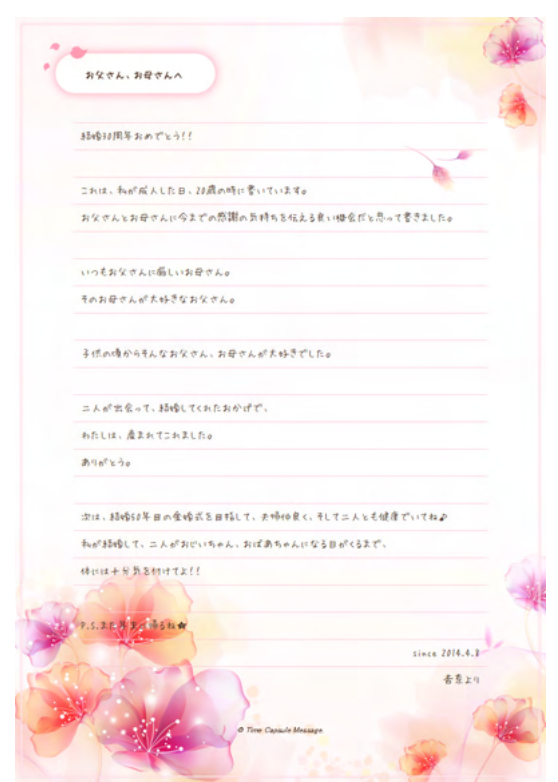 お父さん、お母さんへ
結婚30周年おめでとう!!
これは、私が成人した日、20歳の時に書いています。
お父さんとお母さんに今までの感謝の気持ちを伝える良い機会だと思って書きました。
いつもお父さんに厳しいお母さん。
そのお母さんが大好きなお父さん。
子供の頃からそんなお父さん、お母さんが大好きでした。
二人が出会って、結婚してくれたおかげで、
わたしは、産まれてこれました。
ありがとう。
次は、結婚50年目の金婚式を目指して、夫婦仲良く、そして二人とも健康でいてね♪
私が結婚して、二人がおじいちゃん、おばあちゃんになる日がくるまで、
体には十分気を付けてよ!!
P.S.また年末に帰るね★
since 2014.4.8
より
© Time Capsule Message.